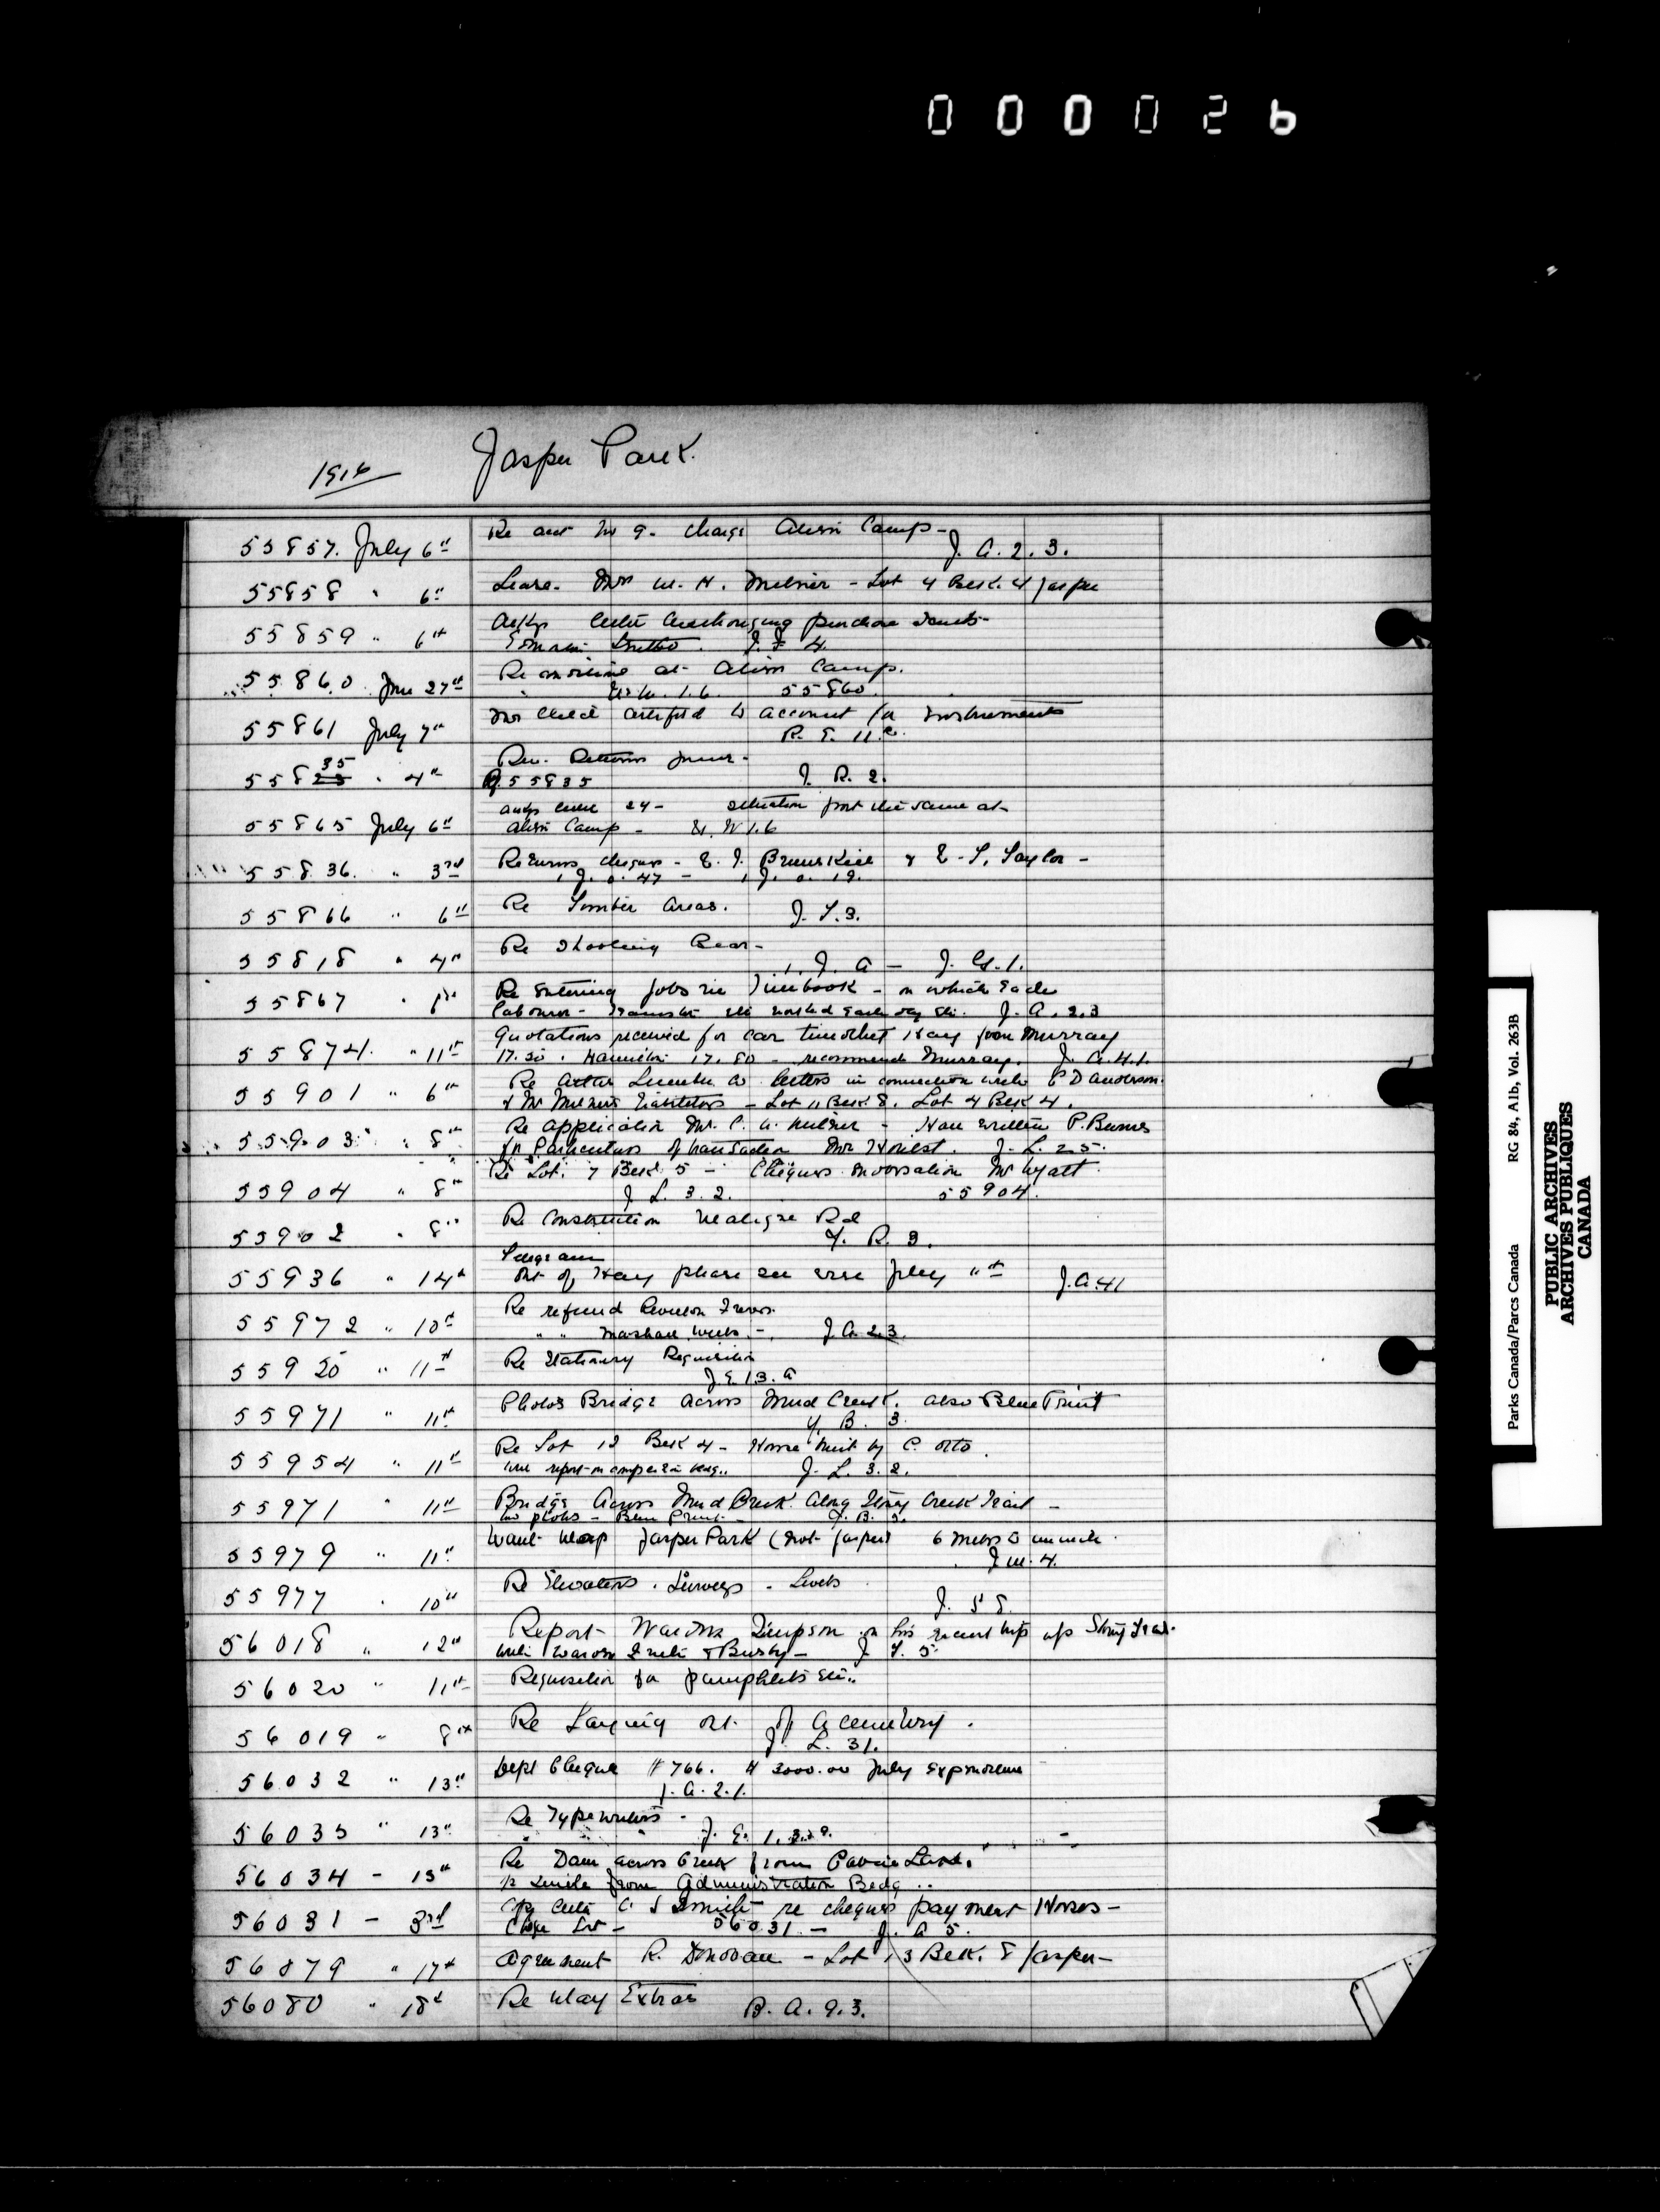 000026
1916 Jasper Park.
55857. July 6th Re acct No 9. Charge Alien Camp - J. A. 2. 3.
55858 " 6th Lease. Mrs W. H. Milner - Lot 4 Belk. 4 Jasper
55859 " 6th Letter authorizing purchase
J. F 4.
55860 June 27th Re at Alien Camp.
W. 1. 6. 55860.
55861 July 7th Mr certified to account for Instruments
R. E. 11. c.
55835 " 4th Rev. Returns June -
55835 J. R. 2.
55865 July 6th 24 - situation at
Alien Camp - W 1. 6
55836. " 3rd Returns cheques - E. J. & E. S. Taylor -
J. O. 47 - J. O. 19.
55866 " 6th Re Timber Areas. J. T. 3.
55818 " 4th Re Shooting Bear -
J. A - J. G. 1.
55867 " Re Entering Jobs in Timebook - on which each
labourer worked each day etc. J. A. 2.3
55874. " 11th Quotations received for car timothy Hay from Murray
17.50. Hamilton 17.80 - recommend Murray. J. A. 4. 1.
55901 " 6th Re Lumber Co letters in connection with P D Anderson.
& Mr Milner's - Lot 11 Belk. 8. Lot 4 Belk 4.
55903 " 8th Re application Mr. C. A. Milner - Have written P. Burns
for Particulars of transaction J. L. 25.
55904 " 8th Re Lot. 7 Belk 5 - Cheques Mr Wyatt.
J. L. 3. 2. 55904.
55902 " 8th Re Construction Rd
J. R. 3.
55936 " 14th Telegram
Out of Hay please see wire July 11th J. A. 41
55972 " 10th Re refund
" " Marshall Wells - J. A. 2.3.
55920 " 11th Re Stationery Requisition
J. E 13. a
55971 " 11th Photos Bridge across Mud Creek. also Blue Print
J. B. 3.
55954 " 11th Re Lot 12 Belk 4 - House built by C. Otto.
will report on J. L. 3. 2.
55971 " 11th Bridge Across Mud Creek. Along Stony Creek Trail -
two photos - Blue Print - J. B. 3.
55979 " 11th Want Map Jasper Park (not Jasper) 6 miles to an inch.
J M. 4.
55977 " 10th Re Elevations. Surveys - Levels
J. S 5.
56018 " 12th Report - Warden Simpson on his recent trip up Stony Trail.
with Warden & Busby - J T. 5.
56020 " 11th Requisition for pamphlets etc..
56019 " 8th Re Laying out of a cemetery.
J. L. 31.
56032 " 13th Dept Cheque # 766. $ 3000.00 July Expenditure
J. A. 2. 1.
56035 " 13th Re Typewriters -
J. E. 1.
56034 - 13th Re Dam across Creek from Cabin Lake.
1/2 mile from Administration Bldg..
56031 - 3rd Letter C. S Smith re cheques payment Horses -
56031 - J. A 5.
56079 " 17th Agreement R. Donovan - Lot 13 Belk. 8 Jasper -
56080 " 18th Re Way Extras B. A. 9. 3.
Parks Canada/Parcs Canada RG 84, A1b, Vol. 263B
PUBLIC ARCHIVES
ARCHIVES PUBLIQUES
CANADA